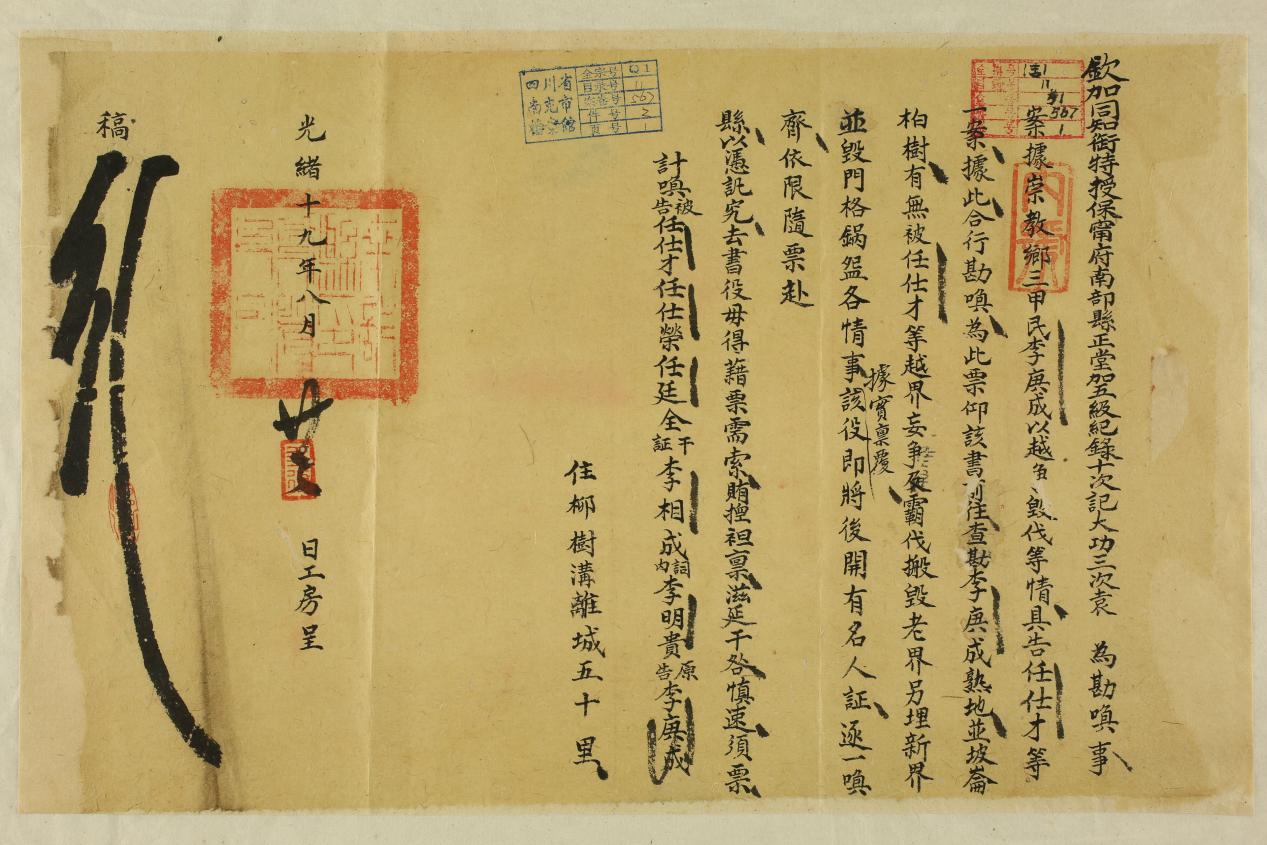 欽加同知銜特授保甯府南部縣正堂加五級紀錄十次記大功三次袁 為勘喚事
案據崇教鄉三甲民李庚成以越 毀伐等情具告任仕才等
一案據此合行勘喚為此票仰該書前往查勘李庚成熟地並坡崙
柏樹有無被任仕才等越界妄爭 霸伐搬毀老界另埋新界
並毀門格鍋盌各情事據實稟覆該役即將後開有名人証逐一喚
齊依限隨票赴
縣以憑訊究去書役毋得藉票需索賄 袒稟滋延干咎慎速須票
計喚被告任仕才任仕榮任廷全干証李相成詞內李明貴原告李庚成
住柳樹溝離城五十里
光緒十九年八月 廿 日工房呈
稿
四川省
南充市
檔案館
全宗号 Q1
目录号 11
案卷号 567
件号 2
页号 1
11
567
1